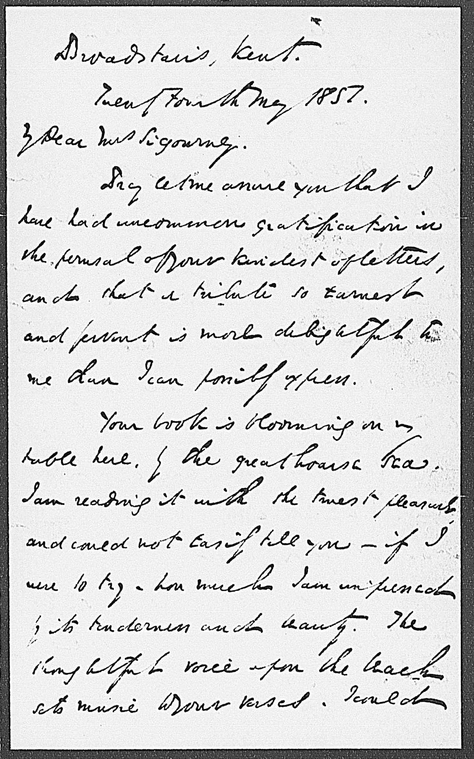 Broadstairs, Kent.
Twenty Fourth May 1851.
My Dear Mrs Sigourney.
Pray let me assure you that I
have had uncommon gratification in
the perusal of your kindest of letters,
and that a tribute so earnest
and fervent is more delightful to
me than I can possibly express.
Your book is blooming on my
table here, by the great hoarse Sea.
I am reading it with the truest pleasure,
and could not easily tell you – if I
were to try – how much I am impressed
by its tenderness and beauty. The
thoughtful voice upon the beach
sets music to your verses. I could